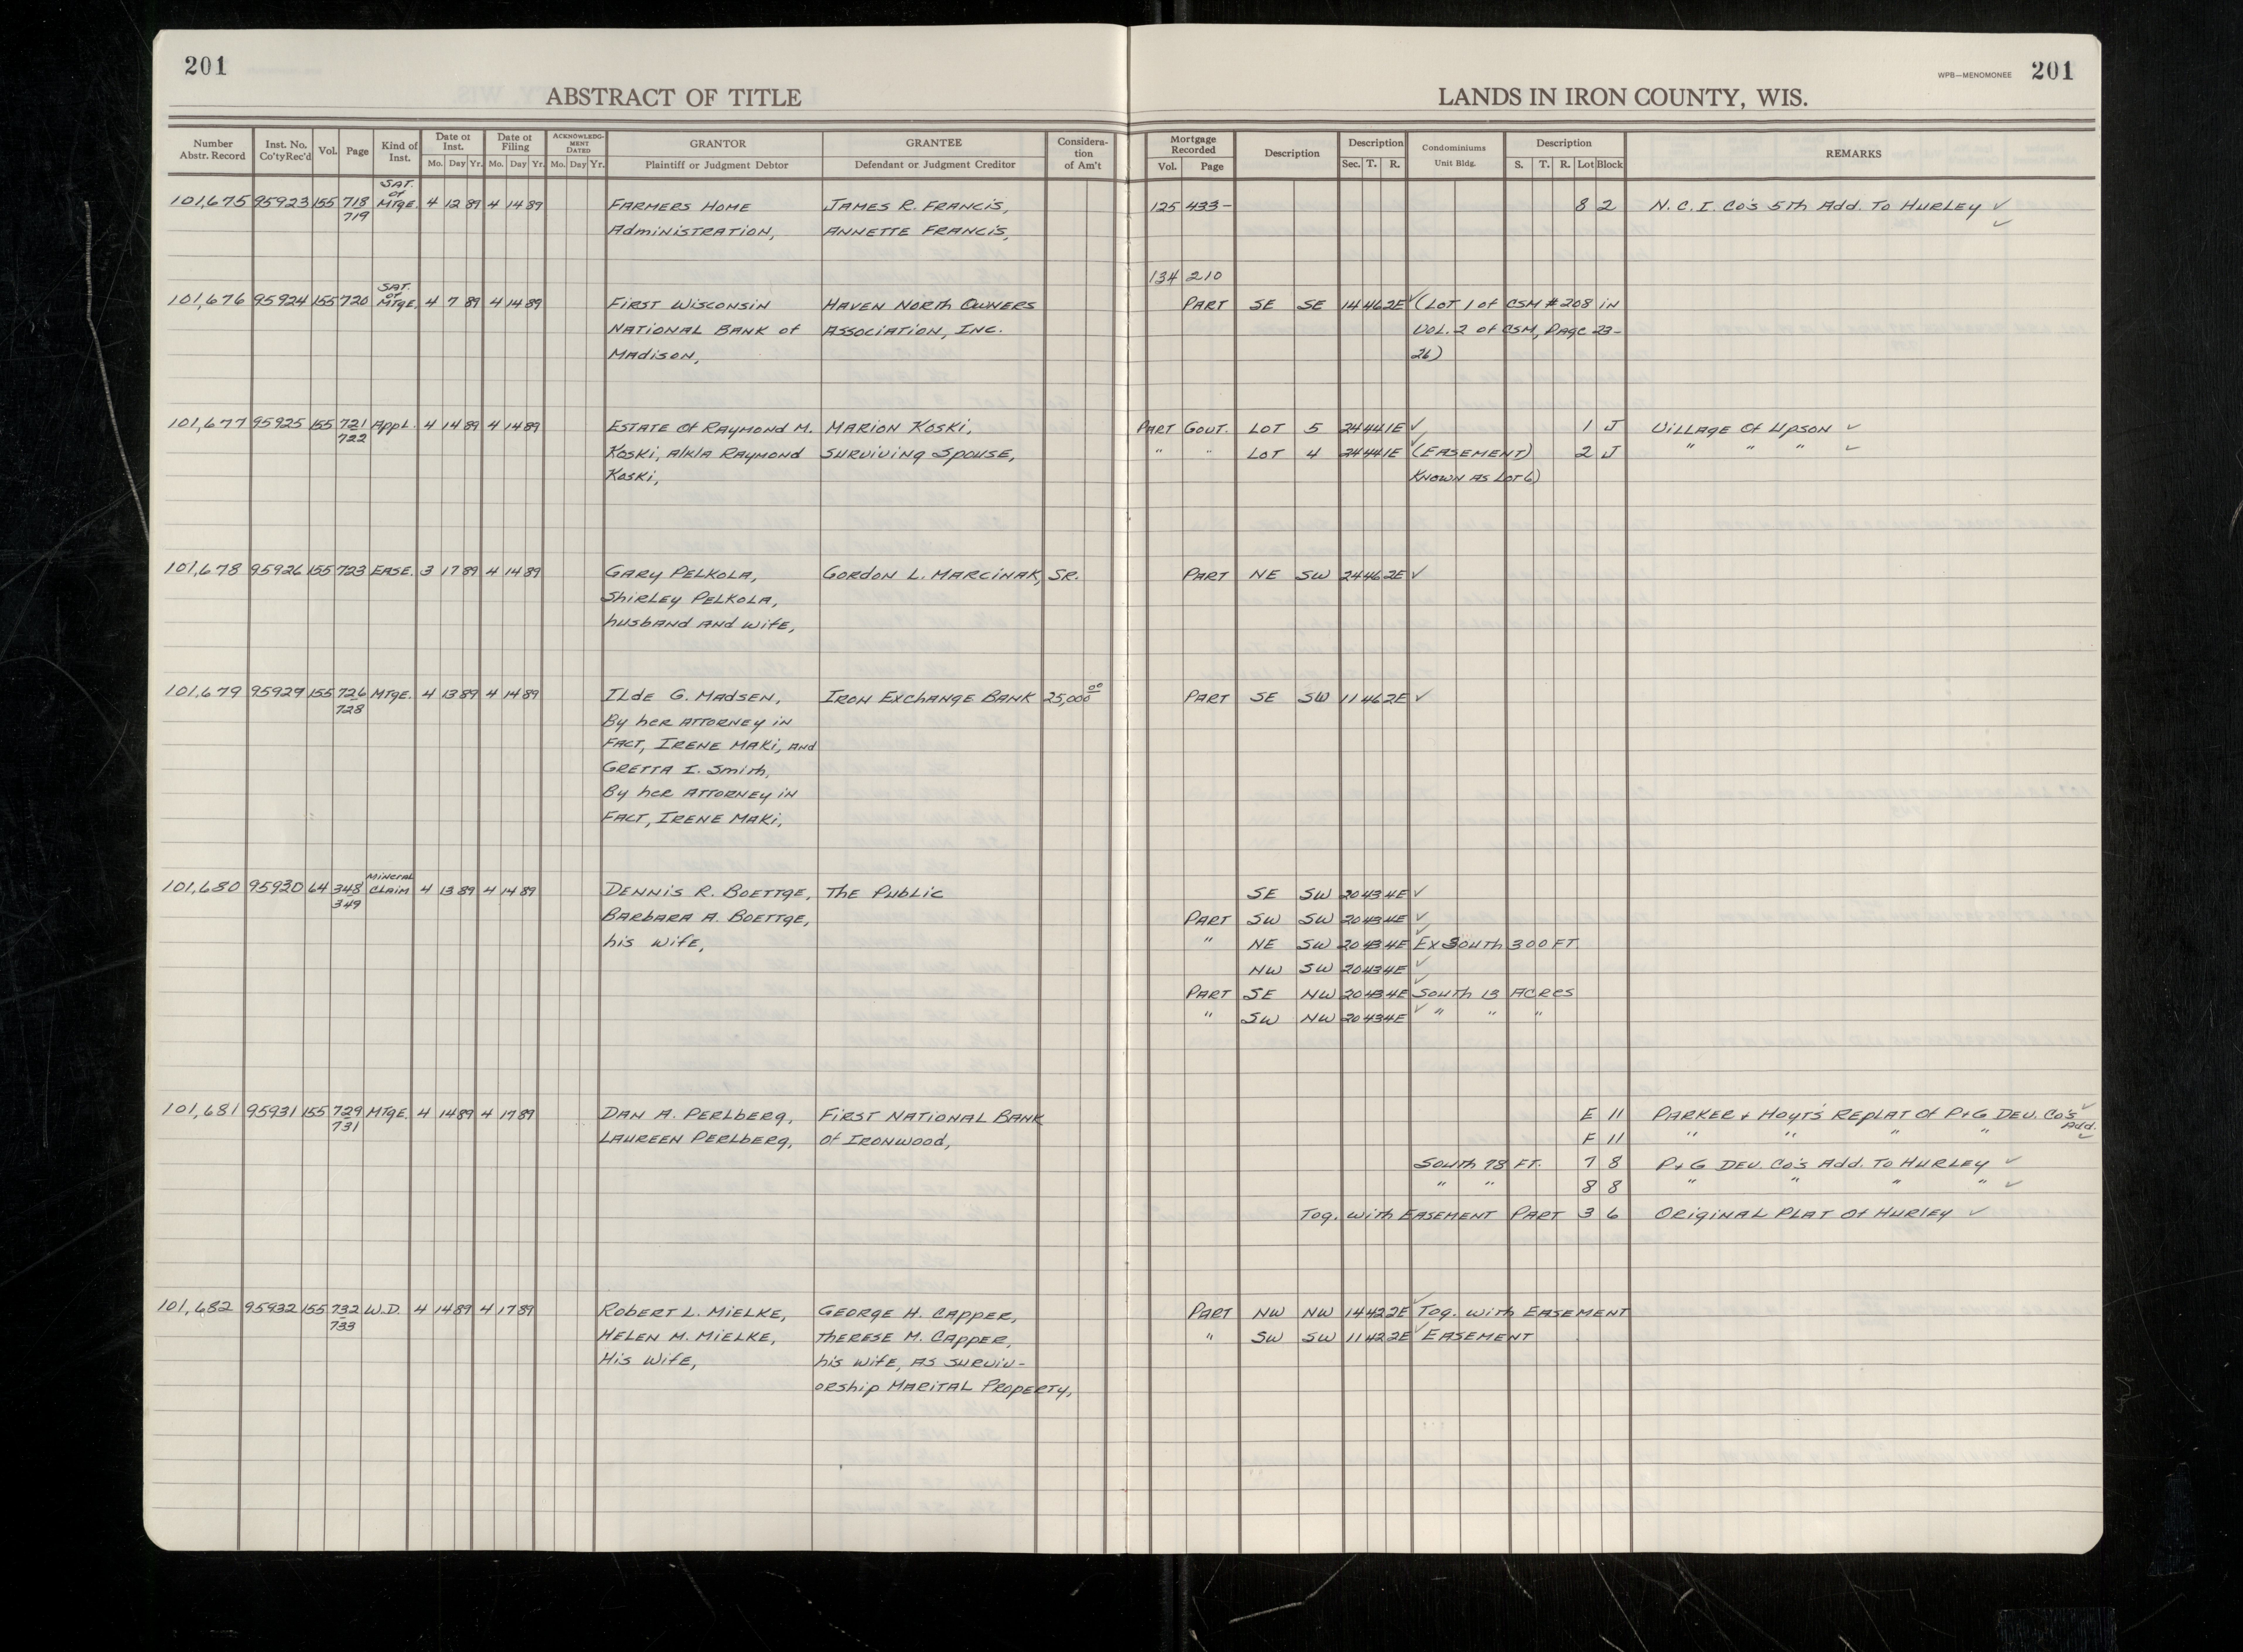 201
ABSTRACT OF TITLE
Number Abstr. Record Inst. No. Co'ty Rec'd Vol. Page Kind of Inst. Date of Inst. Mo. Day Yr. Date of Filing Mo. Day Yr. ACKNOWLEDGMENT DATED Mo. Day Yr. GRANTOR Plaintiff or Judgment Debtor GRANTEE Defendant or Judgment Creditor Consideration of Am't
SAT. of
101,675 95923 155 718 MTGE. 4 12 89 4 14 89 FARMERS HOME JAMES R. FRANCIS,
719 ADMINISTRATION, ANNETTE FRANCIS,
SAT. of
101,676 95924 155 720 MTGE. 4 7 89 4 14 89 FIRST WISCONSIN HAVEN NORTH OWNERS
NATIONAL BANK of ASSOCIATION, INC.
MADISON,
101,677 95925 155 721 APPL. 4 14 89 4 14 89 ESTATE OF RAYMOND M. MARION KOSKI,
722 KOSKI, A/K/A RAYMOND SURVIVING SPOUSE,
KOSKI,
101,678 95926 155 723 EASE. 3 17 89 4 14 89 GARY PELKOLA, GORDON L. MARCINAK, SR.
SHIRLEY PELKOLA,
husband AND wife,
101,679 95929 155 726 MTGE. 4 13 89 4 14 89 ILDE G. MADSEN, IRON EXCHANGE BANK 25,000 00
728 By her ATTORNEY iN
FACT, IRENE MAKI, AND
GRETTA I. Smith,
By her ATTORNEY iN
FACT, IRENE MAKI,
MINERAL
101,680 95930 64 348 CLAIM 4 13 89 4 14 89 DENNIS R. BOETTGE, The Public
349 BARBARA A. BOETTGE,
his wife,
101,681 95931 155 729 MTGE. 4 14 89 4 17 89 DAN A. PERLBERG, FIRST NATIONAL BANK
731 LAUREEN PERLBERG, of IRONWOOD,
101,682 95932 155 732 W.D. 4 14 89 4 17 89 ROBERT L. MIELKE, GEORGE H. CAPPER,
733 HELEN M. MIELKE, THERESE M. CAPPER,
His Wife, his wife, AS SURVIV-
orship MARITAL PROPERTY,
WPB—MENOMONEE 201
LANDS IN IRON COUNTY, WIS.
Mortgage Recorded Vol. Page Description Description Sec. T. R. Condominiums Unit Bldg. Description S. T. R. Lot Block REMARKS
125 433- 8 2 N.C.I. Co's 5th Add. To HURLEY ✓
✓
134 210
PART SE SE 14 46 2E ✓ (LOT 1 of CSM # 208 in
VOL. 2 of CSM, PAGE 23-
26)
PART GOVT. LOT 5 24 44 1E ✓ 1 J VILLAGE Of UPSON ✓
" " LOT 4 24 44 1E ✓ (EASEMENT) 2 J " " " ✓
KNOWN AS LOT 6)
PART NE SW 24 46 2E ✓
PART SE SW 11 46 2E ✓
SE SW 20 43 4E ✓
PART SW SW 20 43 4E ✓
" NE SW 20 43 4E ✓ EX SOUTH 300 FT
NW SW 20 43 4E ✓
PART SE NW 20 43 4E ✓ SOUTH 13 ACRES
" SW NW 20 43 4E ✓ " " "
E 11 PARKER + HOYT'S REPLAT Of P+G DEV. Co's ✓
Add.
F 11 " " " " ✓
SOUTH 78 FT. 7 8 P+G DEV. Co's Add. To HURLEY ✓
" " 8 8 " " " " ✓
Tog. with EASEMENT PART 3 6 ORIGINAL PLAT Of HURLEY ✓
PART NW NW 14 42 2E ✓ Tog. with EASEMENT
" SW SW 11 42 2E ✓ EASEMENT